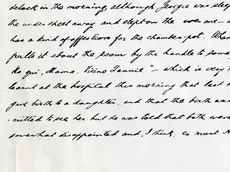 o'clock in this morning, although Georgie was sleep
the under sheet away and slept on the
has a kind of affection for the chamber-pot. When
pulls it about the room by the handle to
qui, Mama. Vicino Fannie" - which is very
learnt at the hospital this morning that last
gave birth to a daughter, and that the birth was
-mitted to see her but he was told that both were
somewhat disappointed and, I think, so must